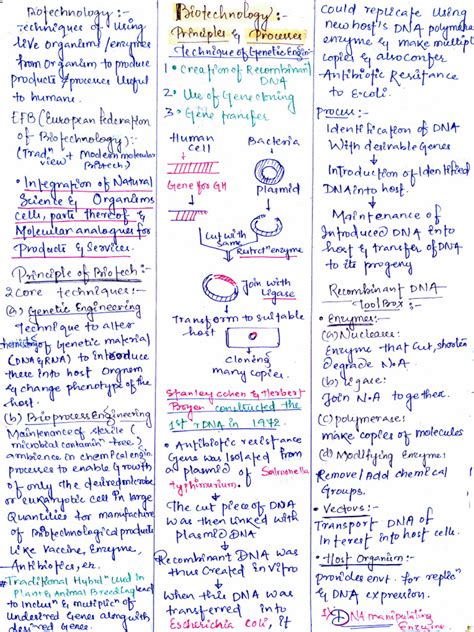 Biotechnology :-
Techniques of using
live organism/enzymes
from organism to produce
products/processes Useful
to humans.
EFB (European federation
of Biotechnology) :-
(Tradn view + Modern molecular
Biotech)
• Integration of Natural
Science & Organisms
cells, parts thereof &
Molecular analogues for
Products & Services.
Principle of Biotech :-
2 Core techniques :-
(a) Genetic Engineering
Technique to alter
chemistry of Genetic material
(DNA & RNA) to introduce
these into host Orgnsm
& change phenotype of the
host.
(b) Bioprocess Engineering
Maintenance of sterile (
microbial contamn free)
ambience in chemical engin.
processes to enable Growth
of only the desired microbe
or eukaryotic cell in large
Quantities for manufacture
of Biotechnological products
Like Vaccine, Enzyme,
Antibiotics, er.
Traditional Hybdn used in
Plant & Animal Breeding lead
to Inclusn & multiplicn of
Undesired Genes along with
desired Genes.
Biotechnology :-
Principles & Processes
Technique of Genetic Engin:-
1• Creation of Recombinant
DNA
2• Use of Gene cloning
3• Gene transfer
Human
Cell
Bacteria
Gene for GH
plasmid
Cut with
same
Restrctn enzyme
Join with
Ligase
Transform to suitable
host
Cloning
many copies.
Stanley Cohen & Herbert
Boyer constructed the
1st rDNA in 1972.
• Antibiotic resistance
Gene was Isolated from
a plasmid of Salmonella
typhimurium.
The cut piece of DNA
was then linked with
plasmid DNA
Recombinant DNA was
thus Created in vitro
When this DNA was
transferred into
Escherichia Coli, it
could replicate Using
new host's DNA polymerase
enzyme & make multiple
copies & also confer
Antibiotic Resistance
to E-coli.
Process :-
Identification of DNA
With desirable Genes
Introduction of Identified
DNA into host.
Maintenance of
Introduced DNA into
host & transfer of DNA
to its progeny
Recombinant DNA
tool Box :-
• Enzymes:-
(a) Nucleases:
Enzyme that cut, shorten
Degrade N.A.
(b) Ligase:
Join N.A together.
(c) polymerase:
make copies of molecules
(d) Modifying Enzyme:
Remove/Add chemical
Groups.
• Vectors :-
Transport DNA of
Interest into host cells.
• Host Organism:-
provides envt. for replicn
& DNA expression.
1) DNA manipulating
Enzyme